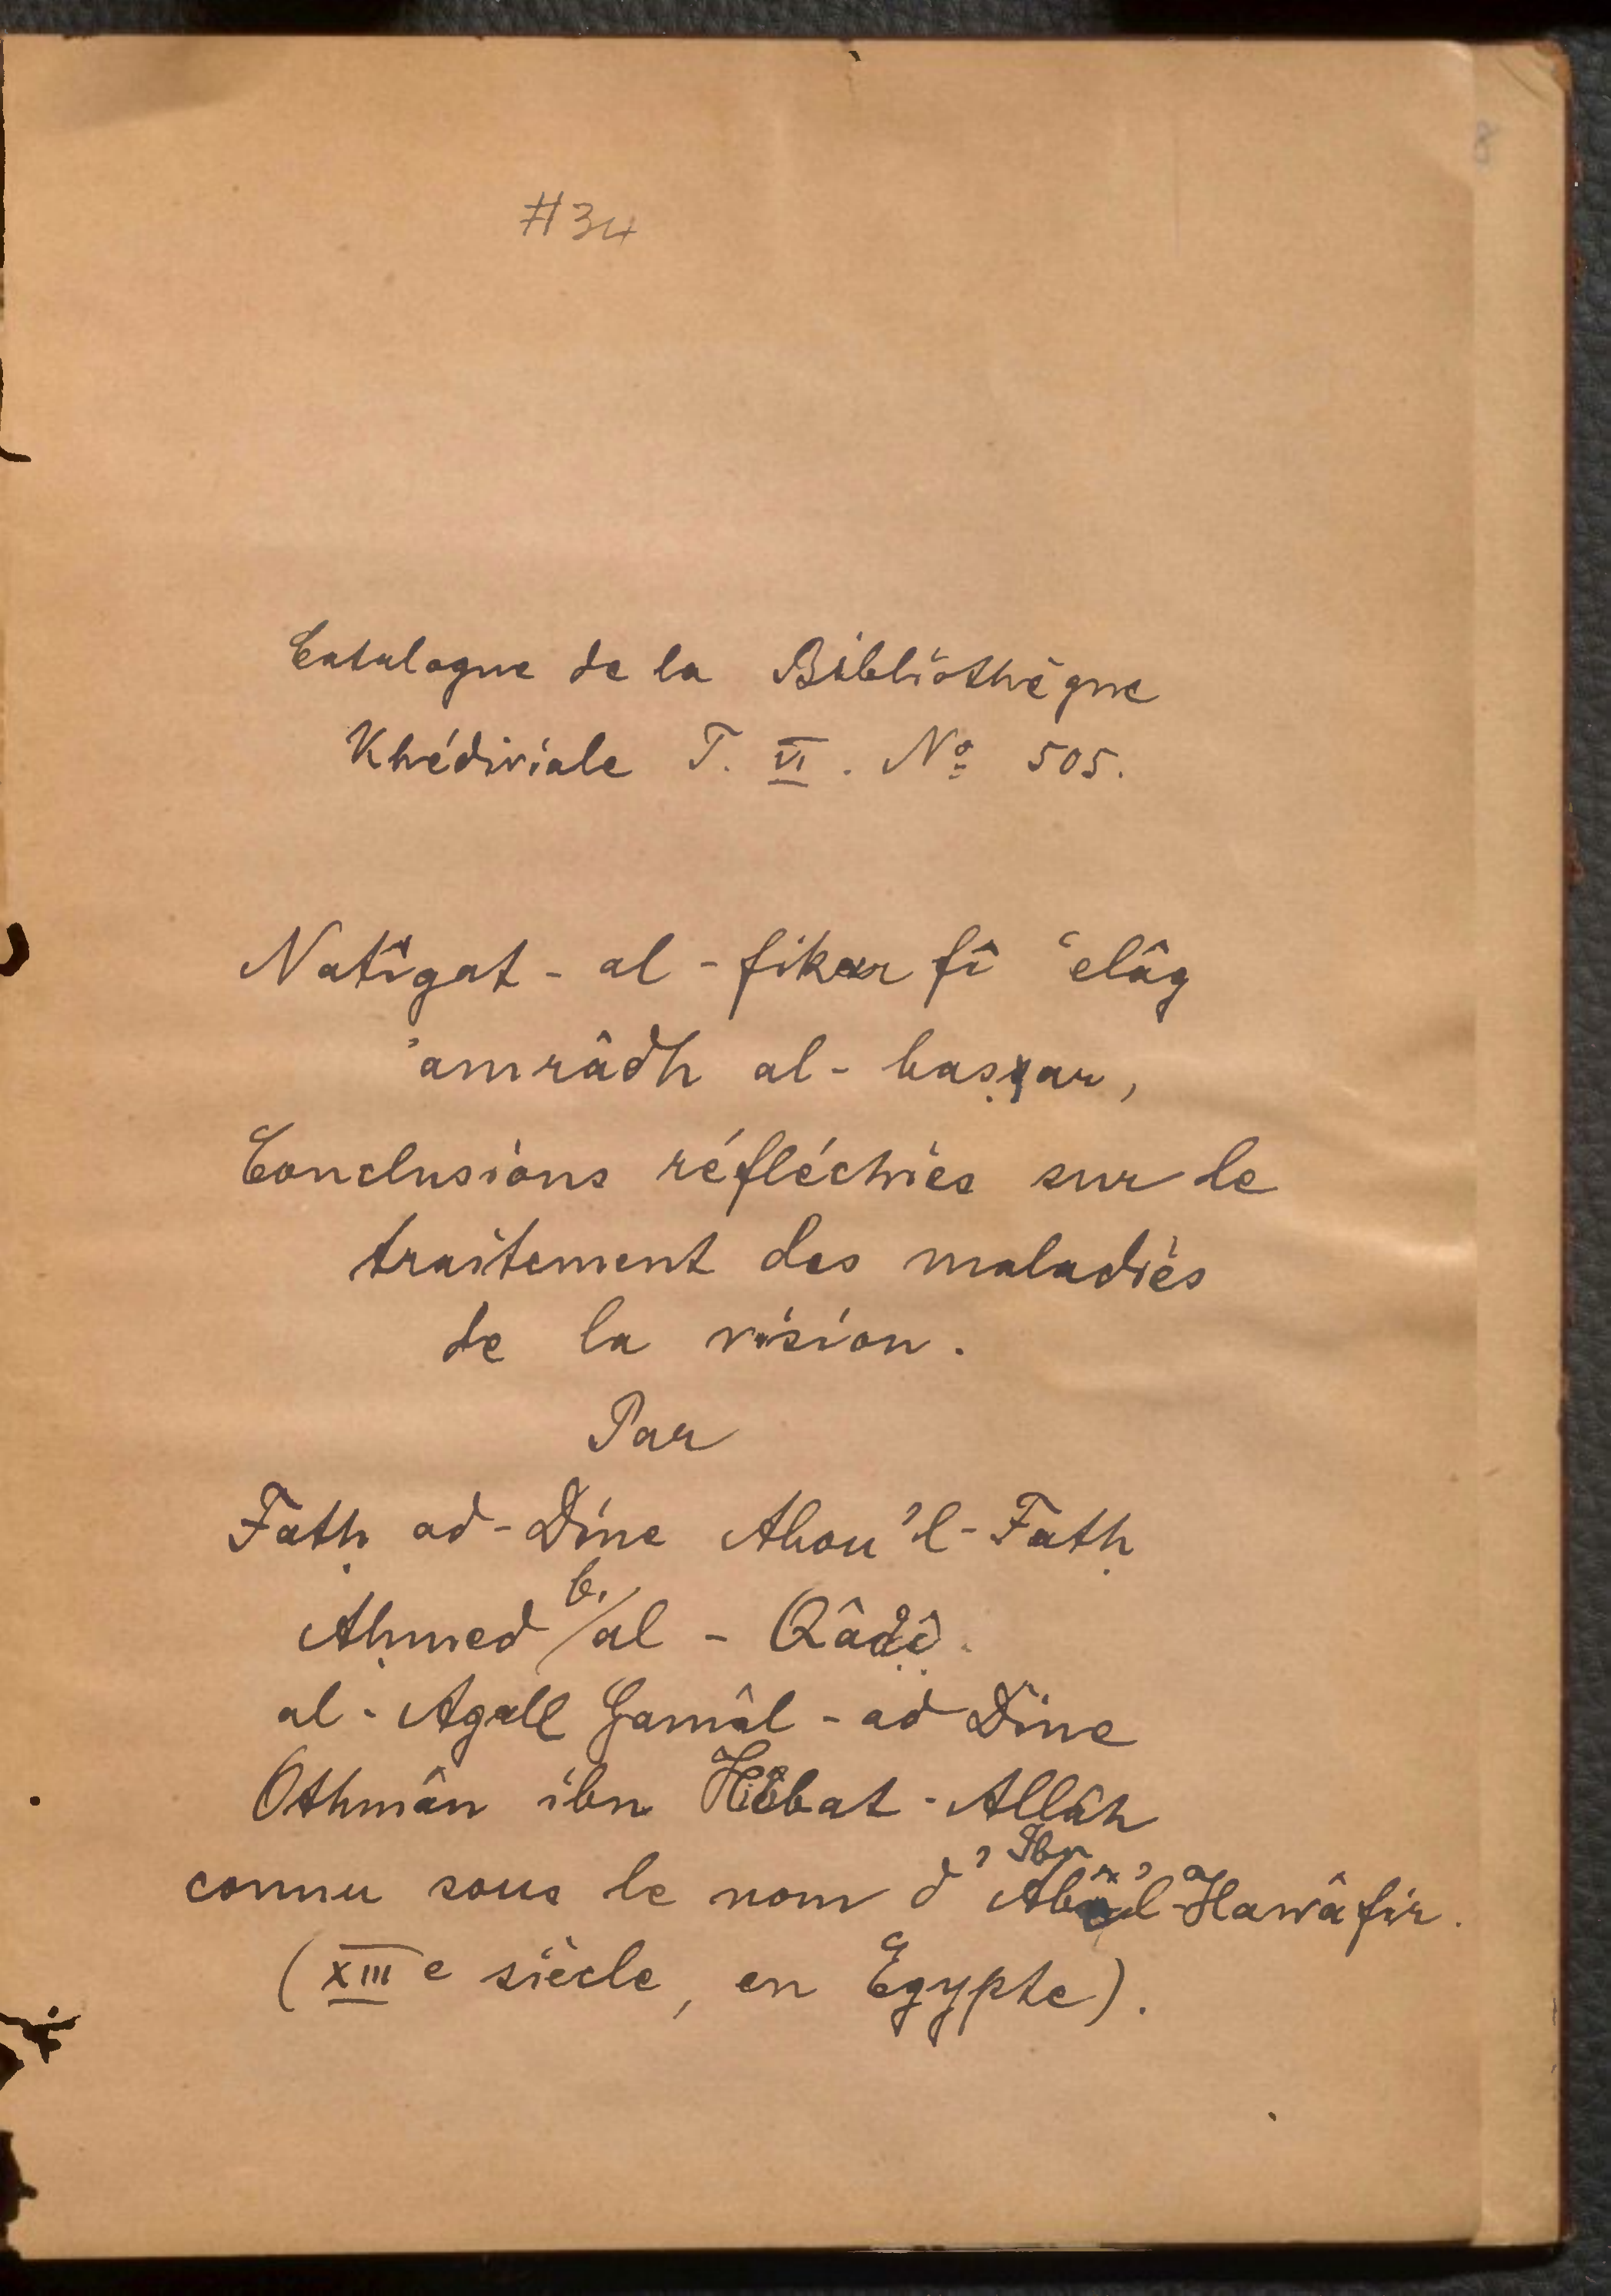 8
#34
Catalogue de la Bibliothèque
Khédiviale T. VI. Nº 505.
Natîgat-al-fikar fî ʿelâg
ʾamrâdh al-baṣar,
Conclusions réfléchies sur le
traitement des maladies
de la vision.
Par
Fatḥ ad-Dîne Abou'l-Fatḥ
Aḥmed b. al-Qâḍî
al-Agall Gamâl-ad Dîne
Othmân ibn Hibat-Allâh
connu sous le nom d'Ibn Abî'l-Hawâfir.
(XIIIe siècle, en Egypte).